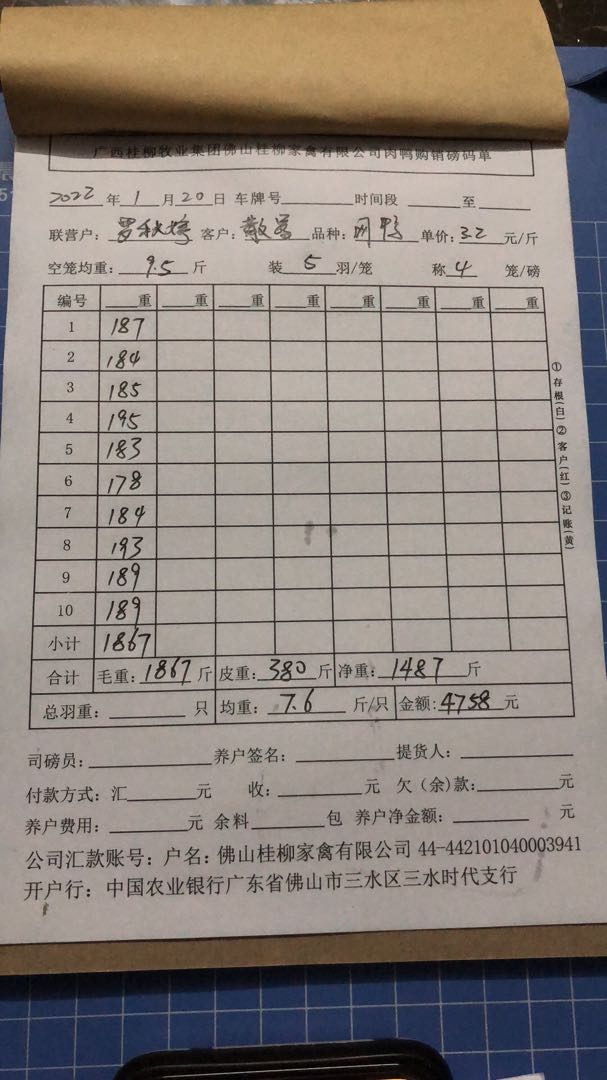 广西桂柳牧业集团佛山桂柳家禽有限公司肉鸭购销磅码单
2022 年 1 月 20 日 车牌号 时间段 至
联营户: 罗秋 客户: 散 品种: 鸭 单价: 3.2 元/斤
空笼均重: 9.5 斤 装 5 羽/笼 称 4 笼/磅
编号 重 重 重 重 重 重 重 重
1 187
2 184
3 185
4 195
5 183
6 178
7 184
8 193
9 189
10 189
小计 1867
合计 毛重: 1867 斤 皮重: 380 斤 净重: 1487 斤
总羽重: 只 均重: 7.6 斤/只 金额: 4758 元
①存根(白)②客户(红)③记账(黄)
司磅员: 养户签名: 提货人:
付款方式: 汇 元 收: 元 欠(余)款: 元
养户费用: 元 余料 包 养户净金额: 元
公司汇款账号: 户名: 佛山桂柳家禽有限公司 44-442101040003941
开户行: 中国农业银行广东省佛山市三水区三水时代支行